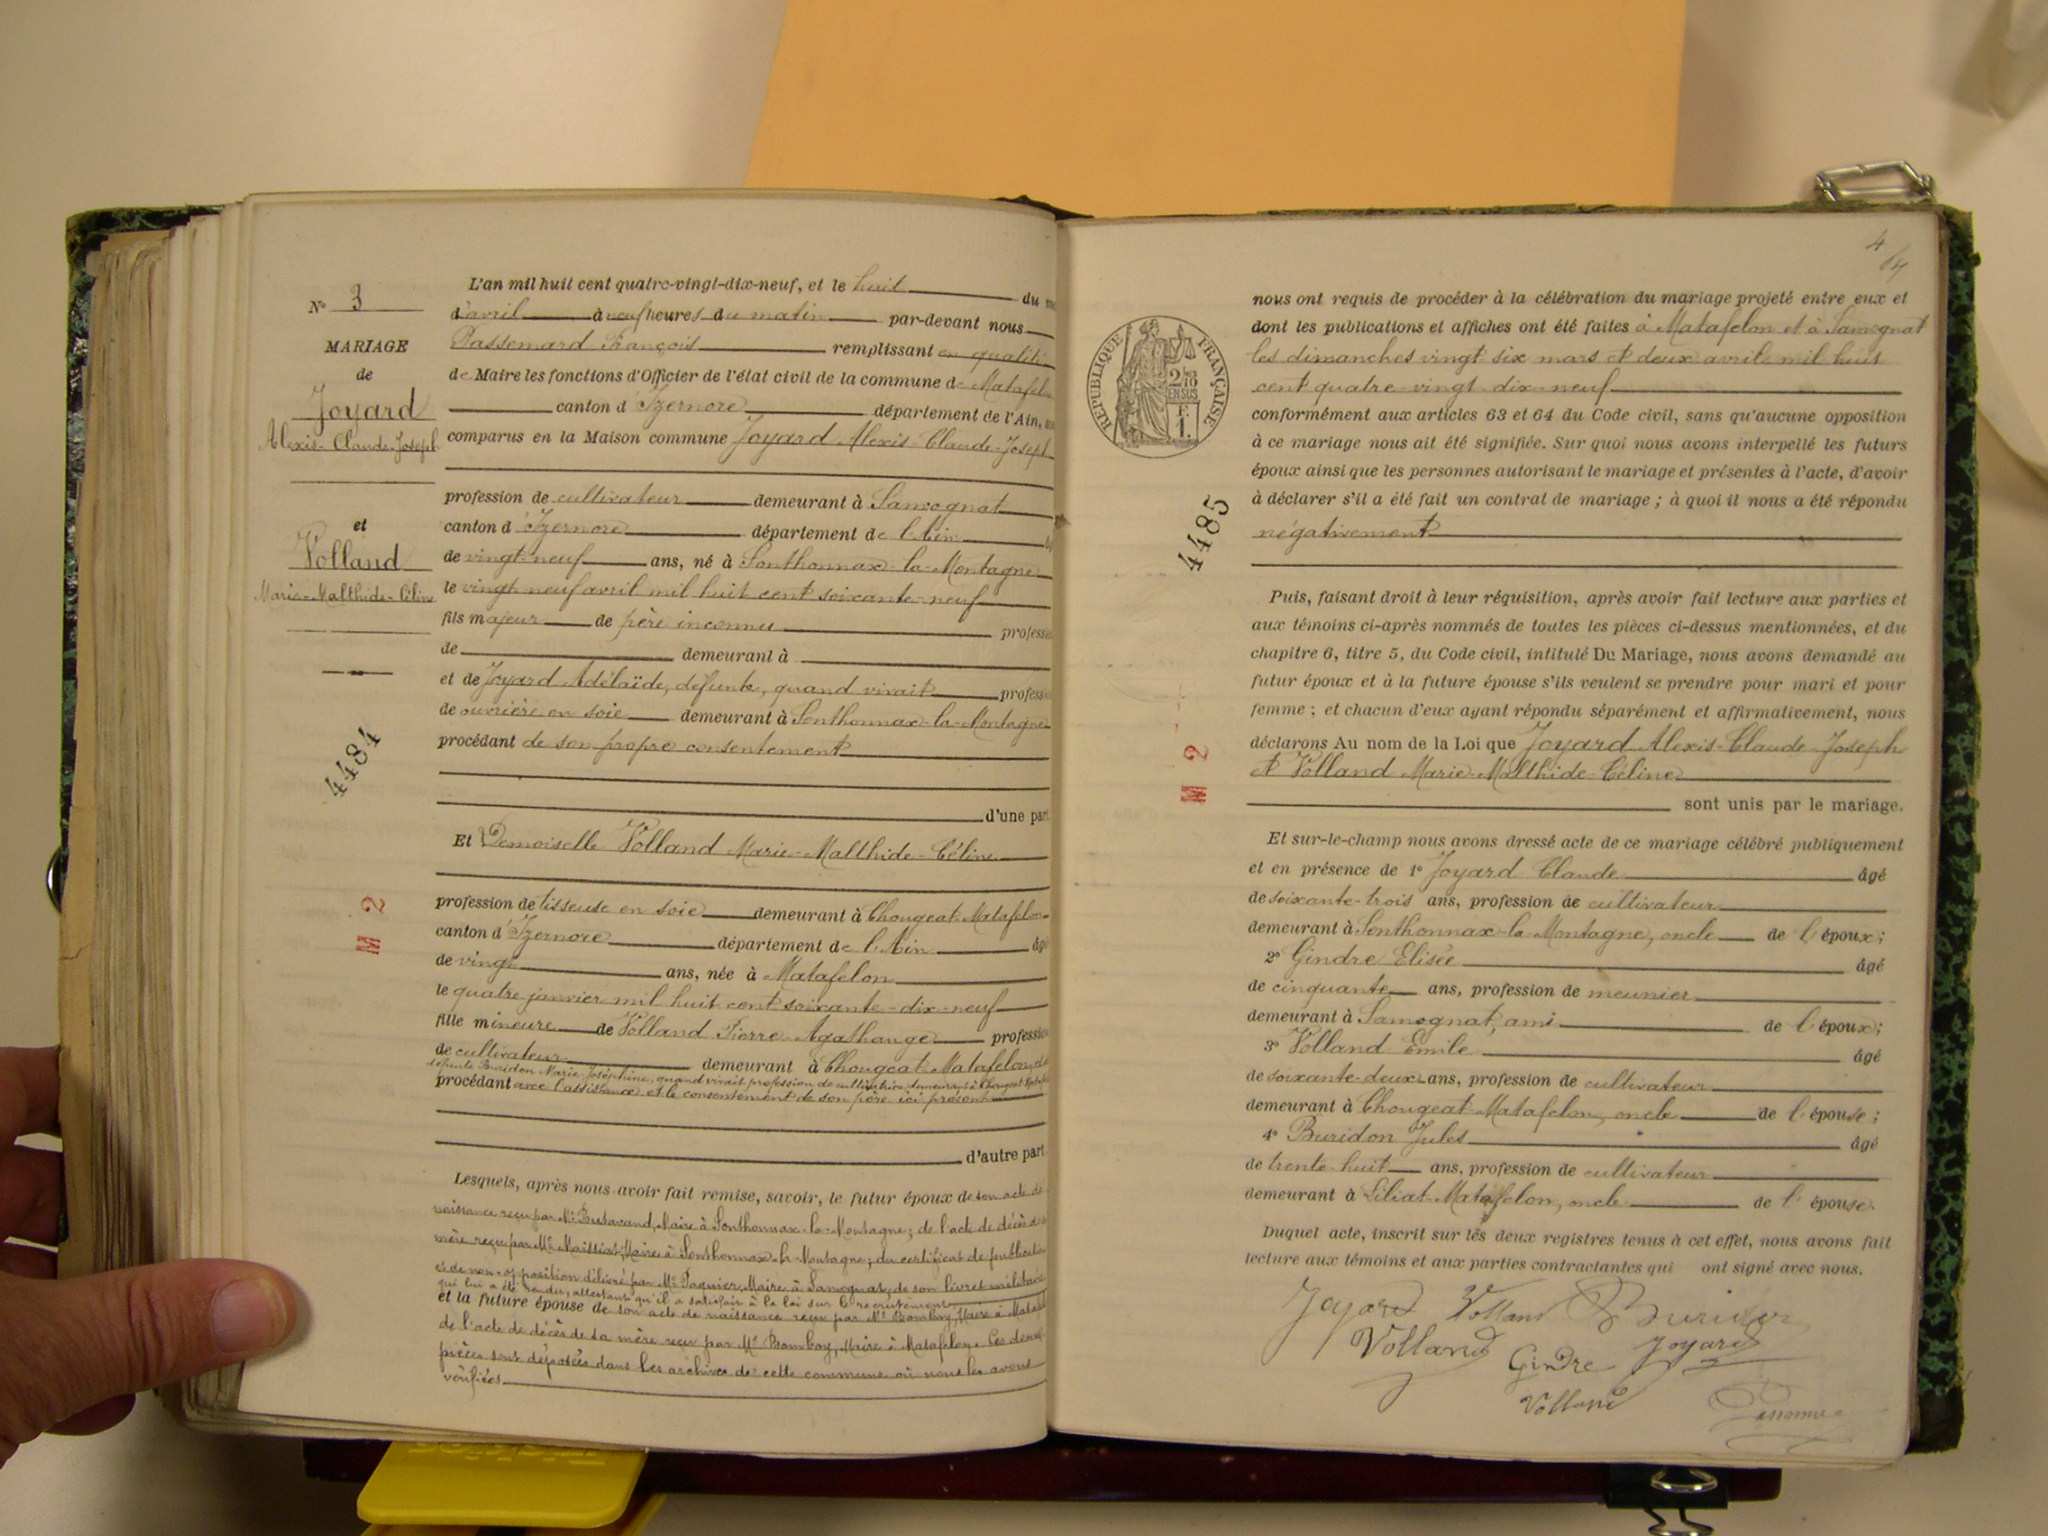 N° 3
MARIAGE
de
Joyard
Alexis-Claude-Joseph
et
Volland
Marie-Malthide-Céline
4484
M 2
L'an mil huit cent quatre-vingt-dix-neuf, et le huit du
d'avril à neuf heures du matin par-devant nous
Passemard François remplissant en qualité
de Maire les fonctions d'Officier de l'état civil de la commune de Matafelon
canton d'Izernore département de l'Ain,
comparus en la Maison commune Joyard Alexis-Claude-Joseph
profession de cultivateur demeurant à Samognat
canton d'Izernore département de l'Ain
de vingt-neuf ans, né à Sonthonnax-la-Montagne
le vingt-neuf avril mil huit cent soixante-neuf
fils majeur de père inconnu profession
de demeurant à
et de Joyard Adélaïde, défunte, quand vivait profession
de ouvrière en soie demeurant à Sonthonnax-la-Montagne
procédant de son propre consentement
d'une part
Et Demoiselle Volland Marie-Malthide-Céline
profession de tisseuse en soie demeurant à Chougeat-Matafelon
canton d'Izernore département de l'Ain âgé
de vingt ans, née à Matafelon
le quatre janvier mil huit cent soixante-dix-neuf
fille mineure de Volland Pierre Agathange profession
de cultivateur demeurant à Chougeat Matafelon, et de
défunte Buridon Marie-Joséphine, quand vivait profession de cultivatrice demeurant à Chougeat
procédant avec l'assistance et le consentement de son père ici présent
d'autre part
Lesquels, après nous avoir fait remise, savoir, le futur époux de son acte de
naissance reçu par Mr Maire à Sonthonnax-la-Montagne; de l'acte de décès de sa
mère reçu par Mr Maissiat, Maire à Sonthonnax-la-Montagne; du certificat de publication
et de non-opposition délivré par Mr Paquier, Maire à Samognat, de son livret militaire
qui lui a été rendu, attestant qu'il a satisfait à la loi sur le recrutement
et la future épouse de son acte de naissance reçu par Mr Bomboy, Maire à Matafelon
de l'acte de décès de sa mère reçu par Mr Bomboy, Maire à Matafelon. Ces deux
pièces sont déposées dans les archives de cette commune où nous les avons
vérifiées
4
RÉPUBLIQUE FRANÇAISE
2/10
EN SUS
F.
1.
4485
M 2
nous ont requis de procéder à la célébration du mariage projeté entre eux et
dont les publications et affiches ont été faites à Matafelon et à Samognat
les dimanches vingt six mars et deux avril mil huit
cent quatre-vingt-dix-neuf
conformément aux articles 63 et 64 du Code civil, sans qu'aucune opposition
à ce mariage nous ait été signifiée. Sur quoi nous avons interpellé les futurs
époux ainsi que les personnes autorisant le mariage et présentes à l'acte, d'avoir
à déclarer s'il a été fait un contrat de mariage ; à quoi il nous a été répondu
négativement
Puis, faisant droit à leur réquisition, après avoir fait lecture aux parties et
aux témoins ci-après nommés de toutes les pièces ci-dessus mentionnées, et du
chapitre 6, titre 5, du Code civil, intitulé Du Mariage, nous avons demandé au
futur époux et à la future épouse s'ils veulent se prendre pour mari et pour
femme ; et chacun d'eux ayant répondu séparément et affirmativement, nous
déclarons Au nom de la Loi que Joyard Alexis-Claude-Joseph
et Volland Marie-Malthide-Céline
sont unis par le mariage.
Et sur-le-champ nous avons dressé acte de ce mariage célébré publiquement
et en présence de 1° Joyard Claude âgé
de soixante-trois ans, profession de cultivateur
demeurant à Sonthonnax-la-Montagne, oncle de l'époux;
2° Gindre Elisée âgé
de cinquante ans, profession de meunier
demeurant à Samognat, ami de l'époux;
3° Volland Emile âgé
de soixante-deux ans, profession de cultivateur
demeurant à Chougeat-Matafelon, oncle de l'épouse;
4° Buridon Jules âgé
de trente-huit ans, profession de cultivateur
demeurant à Siliat-Matafelon, oncle de l'épouse.
Duquel acte, inscrit sur les deux registres tenus à cet effet, nous avons fait
lecture aux témoins et aux parties contractantes qui ont signé avec nous.
Joyard Volland Buridon
Volland Gindre Joyard
Volland